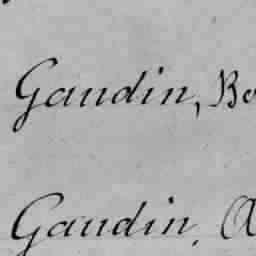 Gaudin, Bo
Gaudin, A